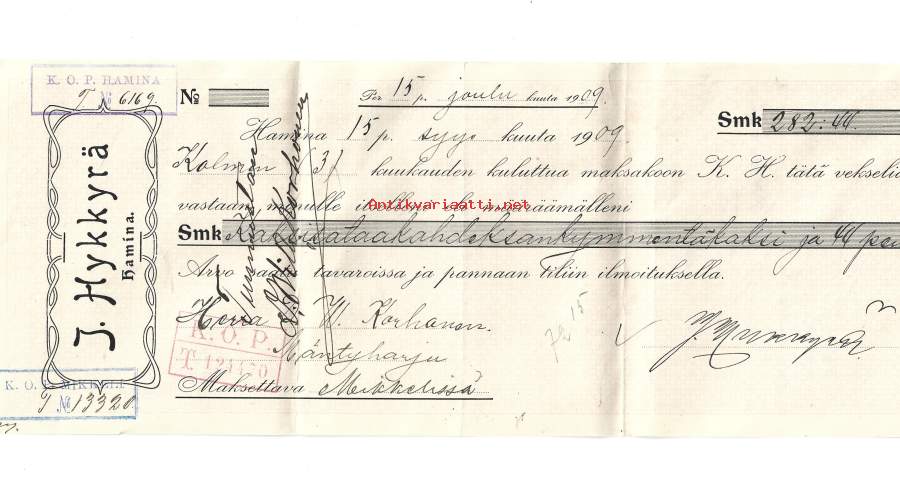 K. O. P. HAMINA
T № 6169
J. Hykkyrä
Hamina.
K. O. P. MIKKELI
T № 13320
№
Per 15 p. joulu kuuta 1909.
Hamina 15 p. syys kuuta 1909
Smk 282: 44
Kolmen (3) kuukauden kuluttua maksakoon K. H. tätä vekseliä
vastaan minulle itselleni eli määräämälleni
Antikvariaatti.net
Smk Kaksisataakahdeksankymmentäkaksi ja 44 pen
Arvo saatu tavaroissa ja pannaan tiliin ilmoituksella.
Herra W. Korhonen.
Mäntyharju
K. O. P.
Maksettava Mikkelissä
Tunnustan
Korhonen
15